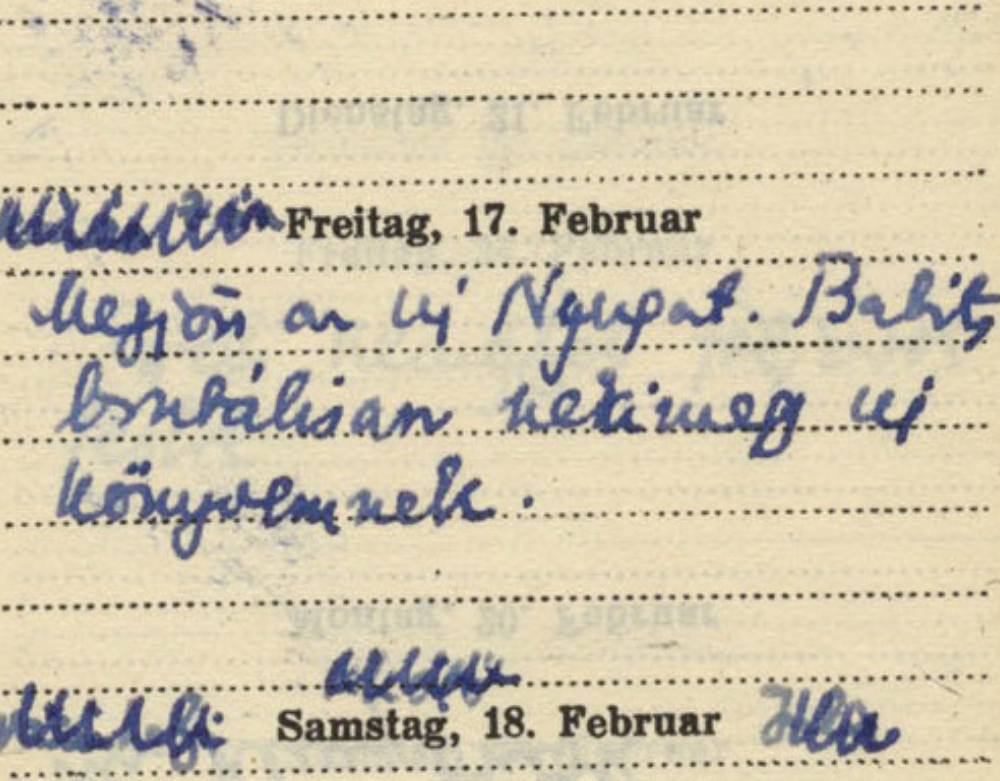 Freitag, 17. Februar
Megjön az uj Nyugat. Babits
brutálisan nekimegy uj
könyvemnek.
Samstag, 18. Februar